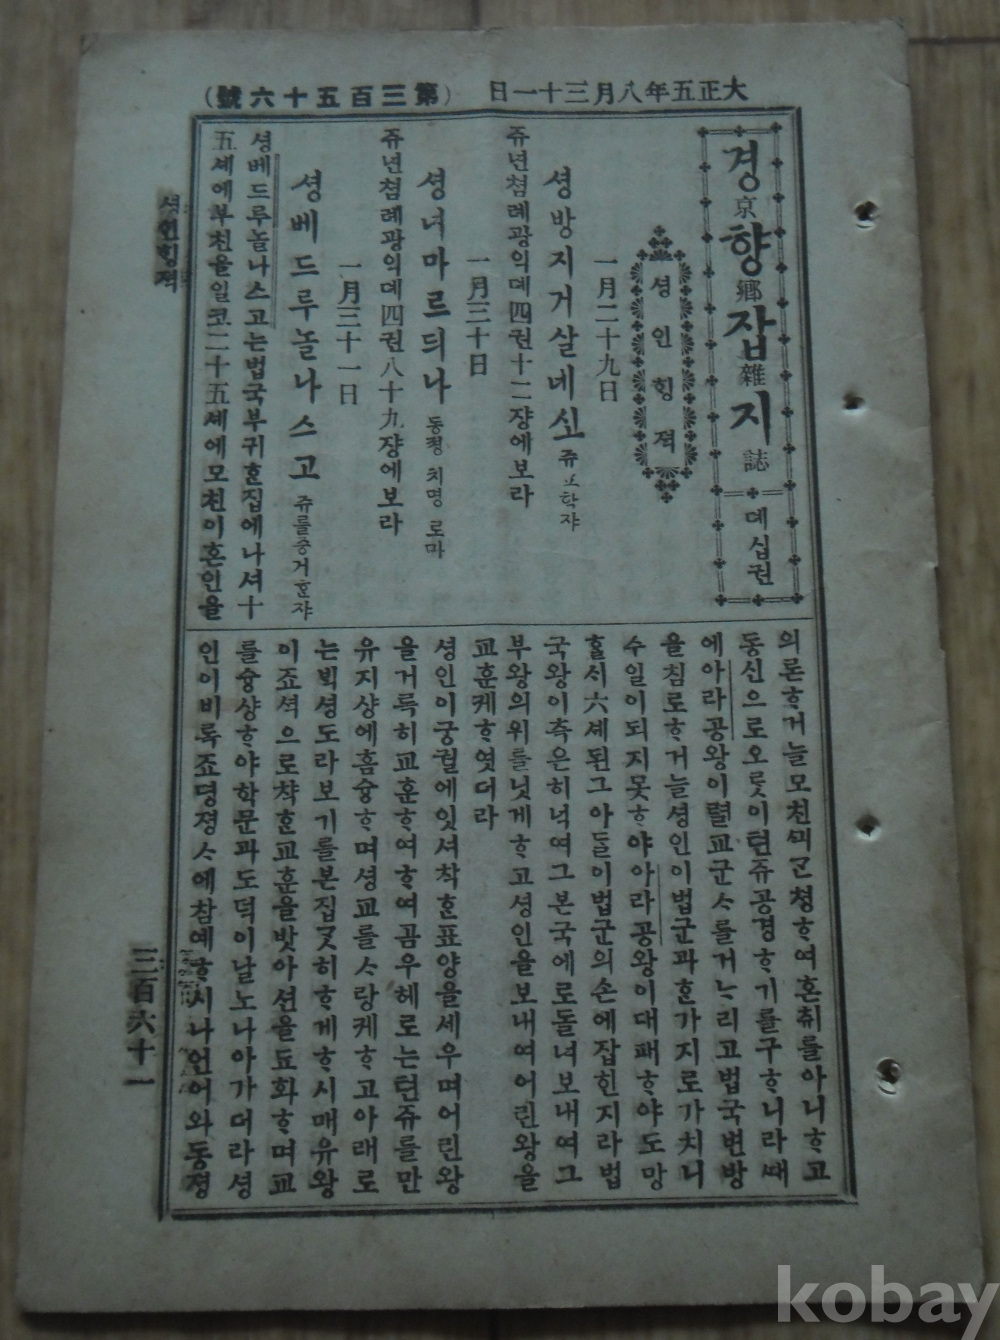 大正五年八月三十一日
(第三百五十六號)
경京향鄕잡雜지誌
뎨십권
셩인힝젹
一月二十九日
셩방지거살네시오 쥬교학쟈
쥬년쳠례광익뎨四권十二쟝에보라
一月三十日
셩녀마르듸나 동졍 치명 로마
쥬년쳠례광익뎨四권八十九쟝에보라
一月三十一日
셩베드루놀나스고 쥬를증거ᄒᆞᆫ쟈
셩베드루놀나스고는법국부귀ᄒᆞᆫ집에나셔十
五셰에부친을일코二十五셰에모친이혼인을
의론ᄒᆞ거늘모친ᄭᅴᄀᆞᆫ쳥ᄒᆞ여혼취를아니ᄒᆞ고
동신으로오롯이텬쥬공경ᄒᆞ기를구ᄒᆞ니라ᄯᅢ
에아라공왕이렬교군ᄉᆞ를거ᄂᆞ리고법국변방
을침로ᄒᆞ거늘셩인이법군과ᄒᆞᆫ가지로가치니
수일이되지못ᄒᆞ야아라공왕이대패ᄒᆞ야도망
ᄒᆞᆯᄉᆡ六셰된그아ᄃᆞᆯ이법군의손에잡힌지라법
국왕이측은히녁여그본국에로돌녀보내여그
부왕의위를닛게ᄒᆞ고셩인을보내여어린왕을
교훈케ᄒᆞ엿더라
셩인이궁궐에잇셔착ᄒᆞᆫ표양을셰우며어린왕
을거륵히교훈ᄒᆞ여ᄒᆞ여곰우헤로는텬쥬를만
유지샹에흠슝ᄒᆞ며셩교를ᄉᆞ랑케ᄒᆞ고아래로
는ᄇᆡᆨ셩도라보기를본집ᄀᆞᆺ히ᄒᆞ게ᄒᆞ시매유왕
이죠셕으로챡ᄒᆞᆫ교훈을밧아션을됴화ᄒᆞ며교
를슝샹ᄒᆞ야학문과도덕이날노나아가더라셩
인이비록죠뎡졍ᄉᆞ에참예ᄒᆞ시나언어와동졍
셩인힝젹
三百六十一
kobay